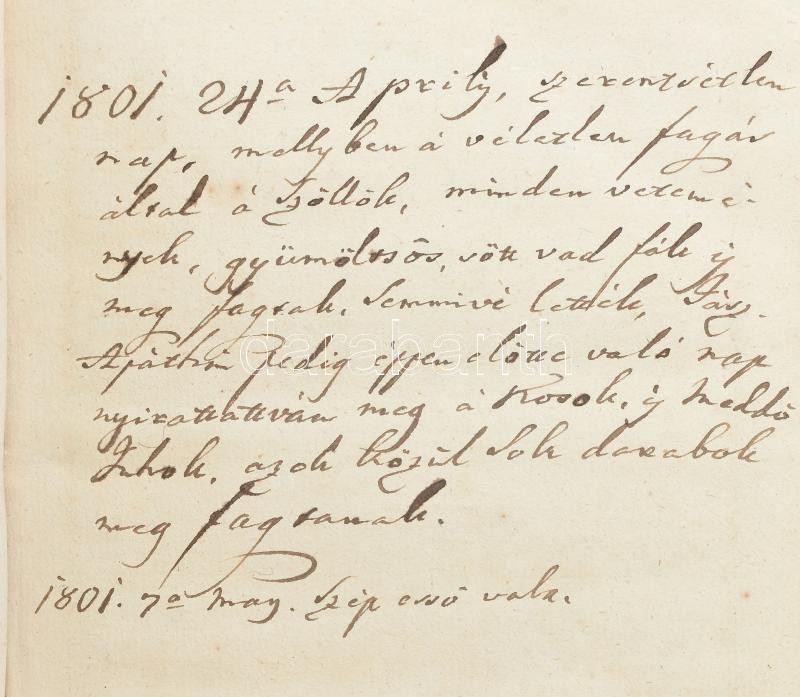 1801. 24a Aprily, szerentsétlen
nap, mellyben á véletlen fagás
által á Szöllök, minden vetemé-
nyek, gyümöltsös, sött vad fák is
meg fagtak, Semmivé lettek, Jász-
Apáthin pedig éppen elötte való nap
nyirattattván meg á Kosok, is Meddö
Juhok, azok közül Sok darabok
meg fagtanak.
1801. 7a May. Szép essö vala.
darabanth